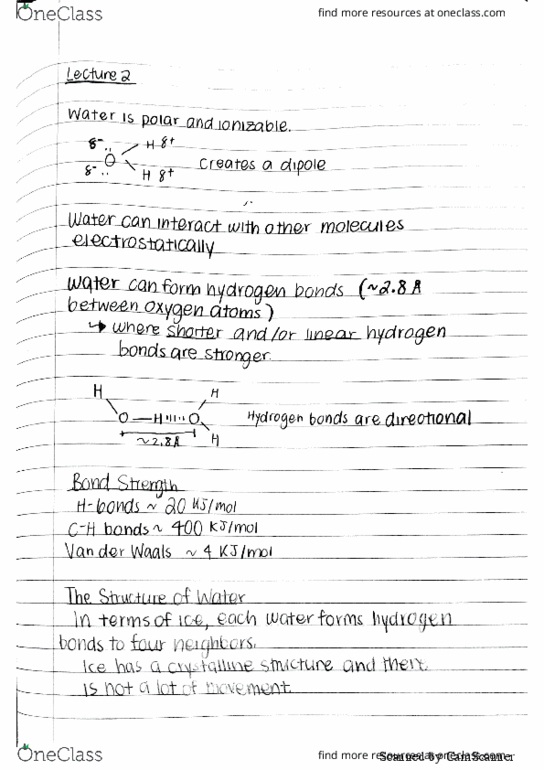 OneClass
find more resources at oneclass.com
Lecture 2
Water is polar and ionizable.
δ- .. H δ+
O creates a dipole
δ- .. H δ+
Water can interact with other molecules
electrostatically
Water can form hydrogen bonds (~2.8 Å
between oxygen atoms)
↳ where shorter and/or linear hydrogen
bonds are stronger
H H
O—H····O Hydrogen bonds are directional
~2.8Å H
Bond Strength
H-bonds ~ 20 KJ/mol
C-H bonds ~ 400 KJ/mol
Van der Waals ~ 4 KJ/mol
The Structure of Water
In terms of ice, each water forms hydrogen
bonds to four neighbors.
Ice has a crystalline structure and there
is not a lot of movement.
OneClass
find more resources at oneclass.com
Scanned by CamScanner